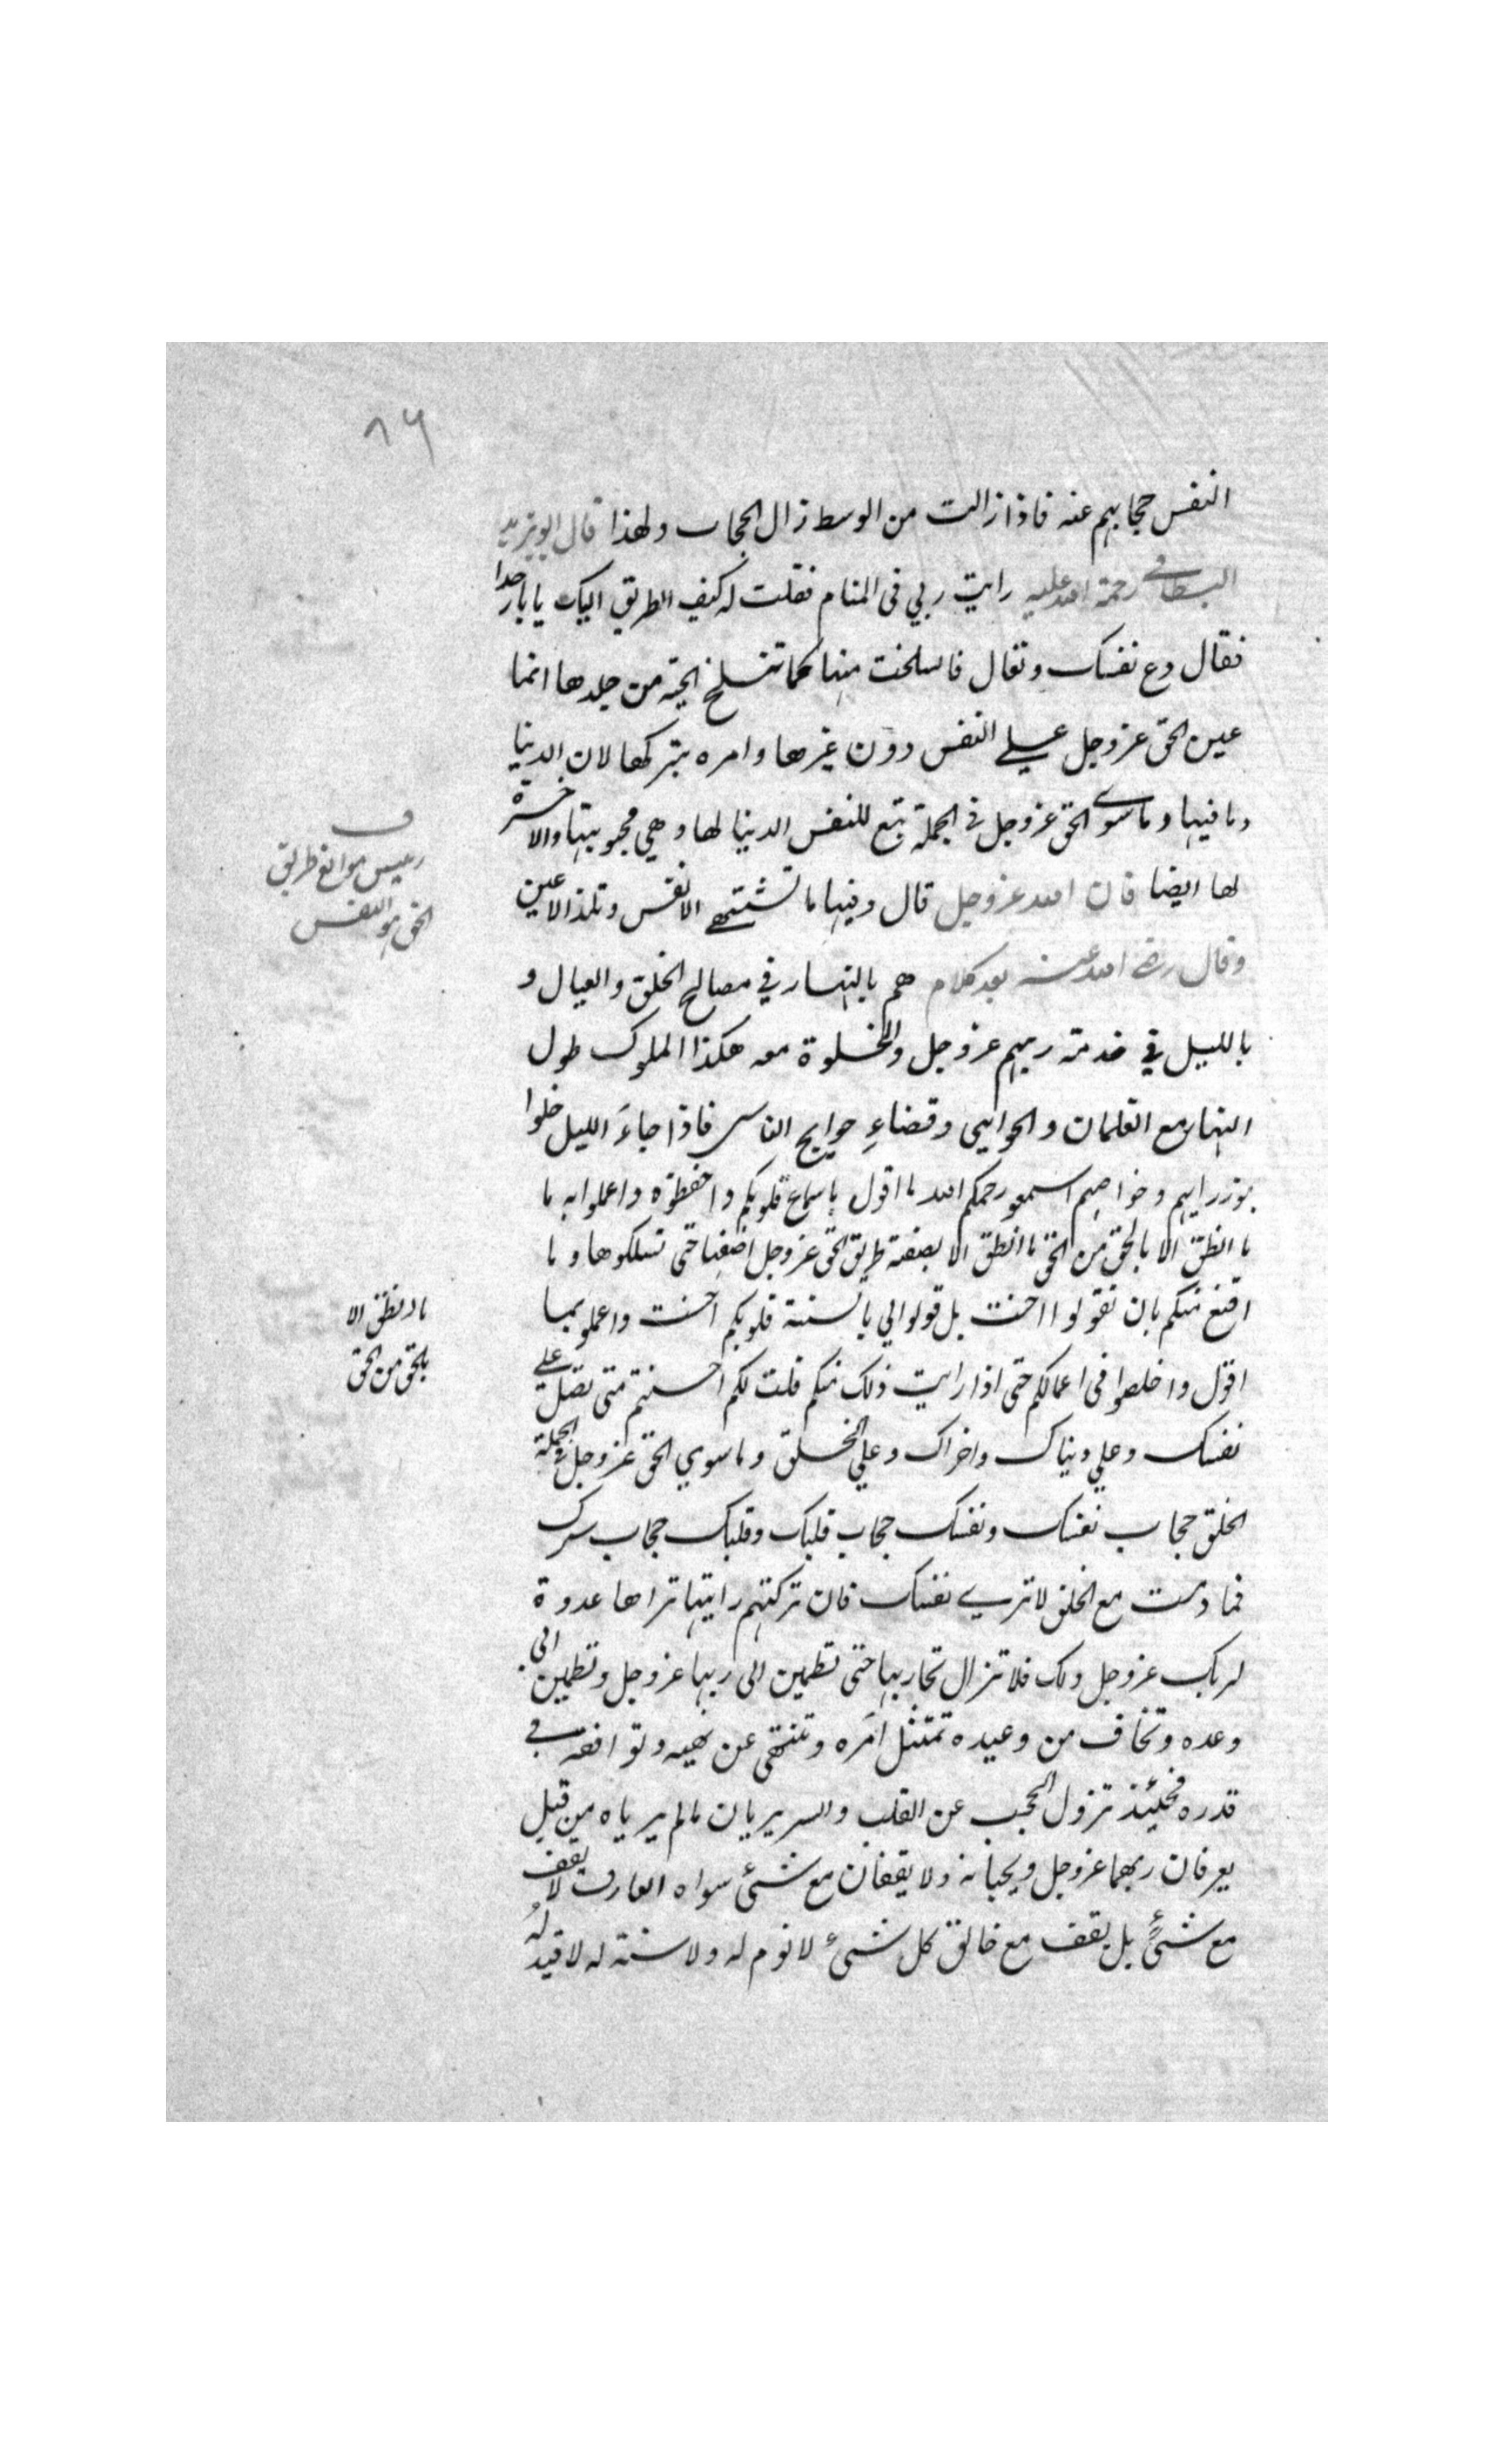 ٨٦
النفس حجابهم عنه فاذا زالت من الوسط زال الحجاب ولهذا قال ابو يزيد
البسطامي رحمة الله عليه رايت ربي في المنام فقلت له كيف الطريق اليك يا بار خدا
فقال دع نفسك وتعال فانسلخت منها كما تنسلخ الحية من جلدها انما
عين الحق عز وجل علي النفس دون غيرها وامره بتركها لان الدنيا
وما فيها وما سوي الحق عز وجل في الجملة تبع للنفس الدنيا لها وهي محبوبتها والاخرة
لها ايضا فان الله عز وجل قال وفيها ما تشتهي الانفس وتلذ الاعين
وقال رضي الله عنه بعد كلام هم بالنهار في مصالح الخلق والعيال و
بالليل في خدمة ربهم عز وجل والخلوة معه هكذا الملوك طول
النهار مع الغلمان والحواشي وقضاء حوايج الناس فاذا جاء الليل خلوا
بوزرايهم وخواصهم اسمعو رحمكم الله ما اقول باسماع قلوبكم واحفظوه واعملوا به ما
ما انطق الا بالحق من الحق ما انطق الا بصفة طريق الحق عز وجل اصفها حتى تسلكوها وما
اقنع منكم بان تقولوا احسنت بل قولوا لي بالسنة قلوبكم احسنت واعملو بما
اقول واخلصوا في اعمالكم حتى اذا رايت ذلك منكم قلت لكم احسنتم متى تصل علي
نفسك وعلي دنياك واخراك وعلي الخلق وما سوي الحق عز وجل في الجملة
الخلق حجاب نفسك ونفسك حجاب قلبك وقلبك حجاب سرك
فما دمت مع الخلق لا تري نفسك فان تركتهم رايتها تراها عدوة
لربك عز وجل ولك فلا تزال تحاربها حتى تطمين الى ربها عز وجل وتطمين الي
وعده وتخاف من وعيده تمتثل امره وتنتهي عن نهيه وتوافقه في
قدره فحينئذ تزول الحجب عن القلب والسر يريان مالم يرياه من قبل
يعرفان ربهما عز وجل ويحبانه ولا يقفان مع شئ سواه العارف لا يقف
مع شئ بل يقف مع خالق كل شئ لا نوم له ولا سنة له لا قيد له
ف
رئيس موانع طريق
الحق هو النفس
ما انطق الا
بالحق من الحق